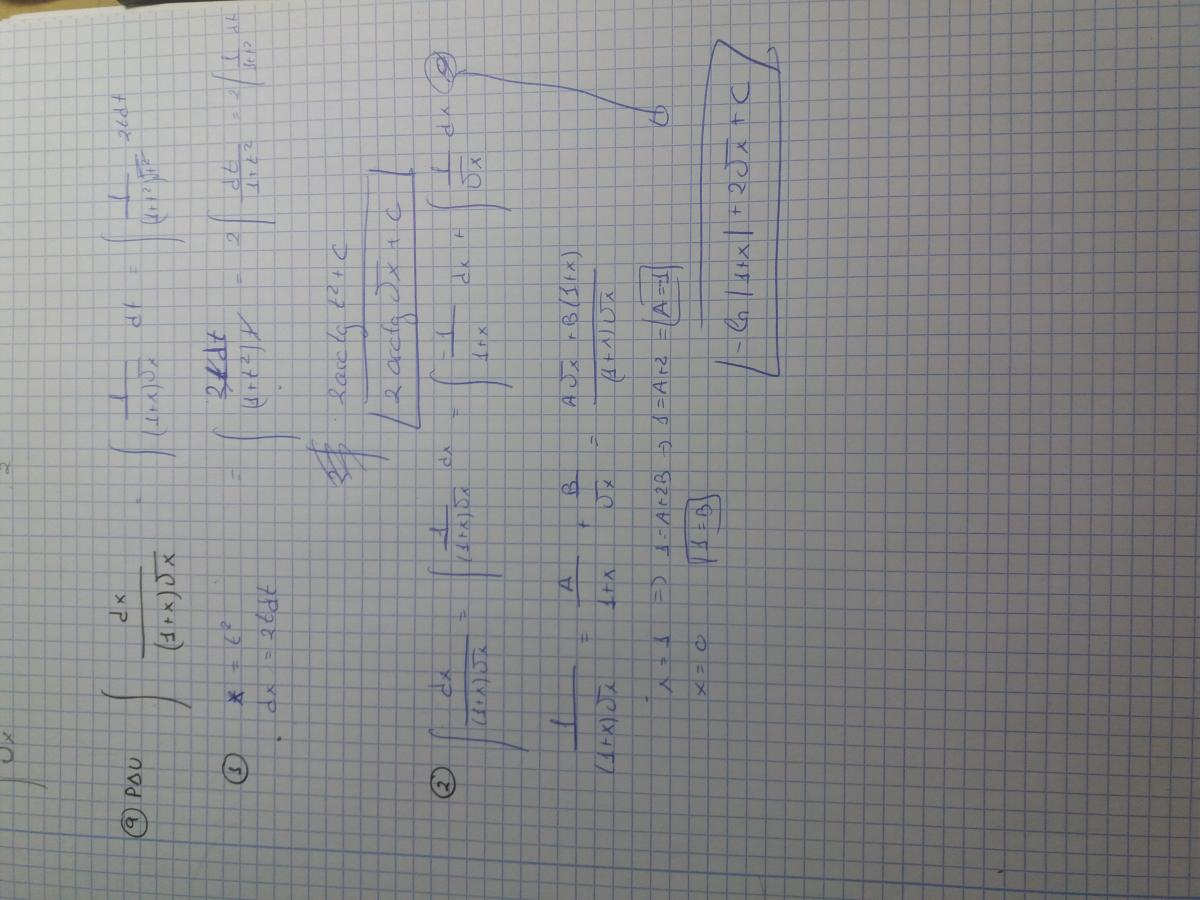 √x
2
⑨ PΔU ∫ dx / (1+x)√x = ∫ 1 / (1+x)√x dt = ∫ 1 / (1+t²)√t² 2tdt
① x = t² = ∫ 2tdt / (1+t²)t = 2∫ dt / 1+t² = 2∫ 1 / 1+t² dt
dx = 2tdt
2arctg t² + C
2arctg √x + C
② ∫ dx / (1+x)√x = ∫ 1 / (1+x)√x dx = ∫ -1 / 1+x dx + ∫ 1 / √x dx
1 / (1+x)√x = A / 1+x + B / √x = A√x + B(1+x) / (1+x)√x
x=1 => 1=A+2B → 1=A+2 = A=-1
x=0 1=B
-ln|1+x| + 2√x + C